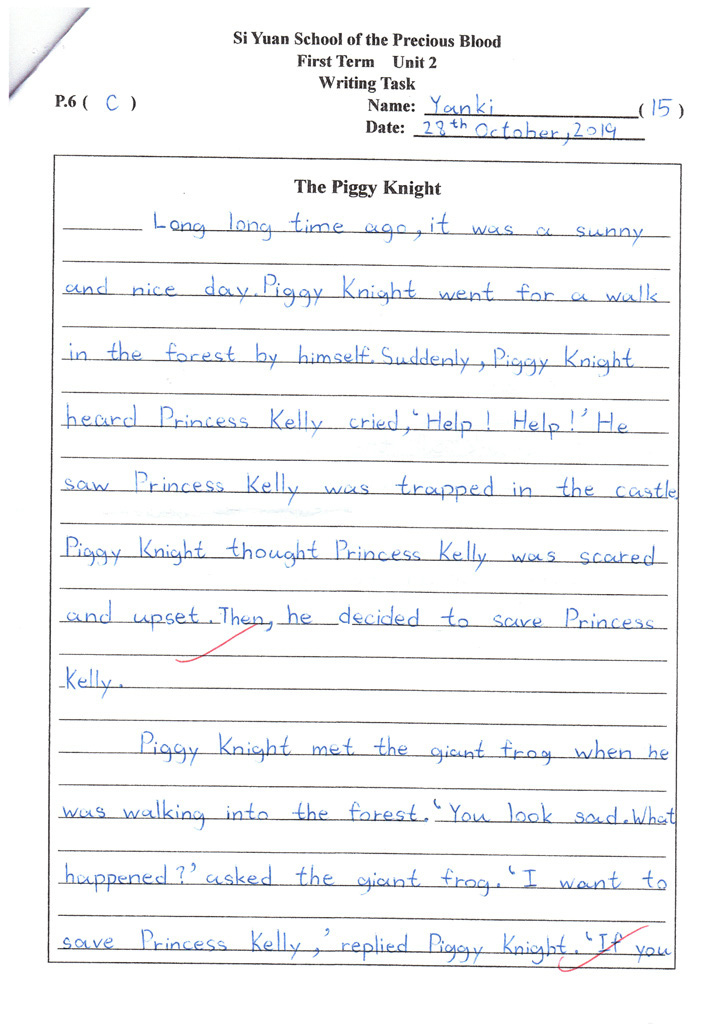 Si Yuan School of the Precious Blood
First Term Unit 2
Writing Task
P.6 ( C ) Name: Yanki (15)
Date: 28th October, 2019
The Piggy Knight
Long long time ago, it was a sunny
and nice day. Piggy Knight went for a walk
in the forest by himself. Suddenly, Piggy Knight
heard Princess Kelly cried, 'Help! Help!' He
saw Princess Kelly was trapped in the castle.
Piggy Knight thought Princess Kelly was scared
and upset. Then, he decided to save Princess
Kelly.
Piggy Knight met the giant frog when he
was walking into the forest. 'You look sad. What
happened?' asked the giant frog. 'I want to
save Princess Kelly,' replied Piggy Knight. 'If you